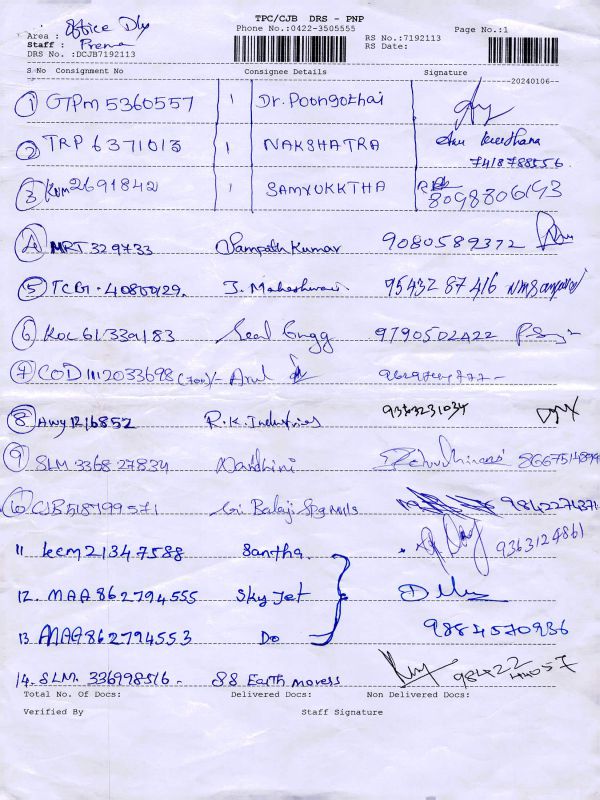 TPC/CJB DRS - PNP
Area : office Dly Phone No.:0422-3505555 Page No.:1
Staff : Prema RS No.:7192113
DRS No. :DCJB7192113 RS Date:
S No Consignment No Consignee Details Signature
20240106
1 GTPM 5360557 1 Dr. Poongothai
2 TRP 6371013 1 NAKSHATRA
7418788556
3 KUM 2691842 1 SAMYUKKTHA 8098806193
4 MRT 329733 Sampath Kumar 9080589372
5 TCG 9543287416
6 9790502422
7 COD 1112033698 (700)/- Arul
8 Awy 1216852 R.K. Industries 9363231034
9 SLM 336827834 Nandhini
10 CJB 518799571 Sri Balaji Spg Mills 9842271371
11 kcm 21347588 Santha 9363124861
12. MAA 862794555 Sky Jet
13 MAA 862794553 Do 9884570936
14. SLM. 336998516 - SS Earth movers
Total No. Of Docs: Delivered Docs: Non Delivered Docs:
Verified By Staff Signature